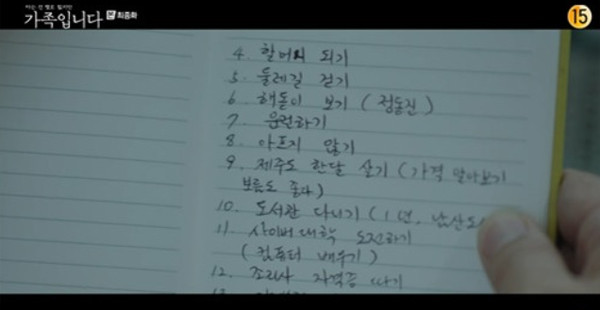 아는 건 별로 없지만
가족입니다 본 최종화
15
4. 할머니 되기
5. 둘레길 걷기
6. 해돋이 보기 (정동진)
7. 운전하기
8. 아프지 않기
9. 제주도 한달 살기 (가격 알아보기
보름도 좋다)
10. 도서관 다니기 (1년, 남산도
11. 사이버대학 도전하기
(컴퓨터 배우기)
12. 조리사 자격증 따기